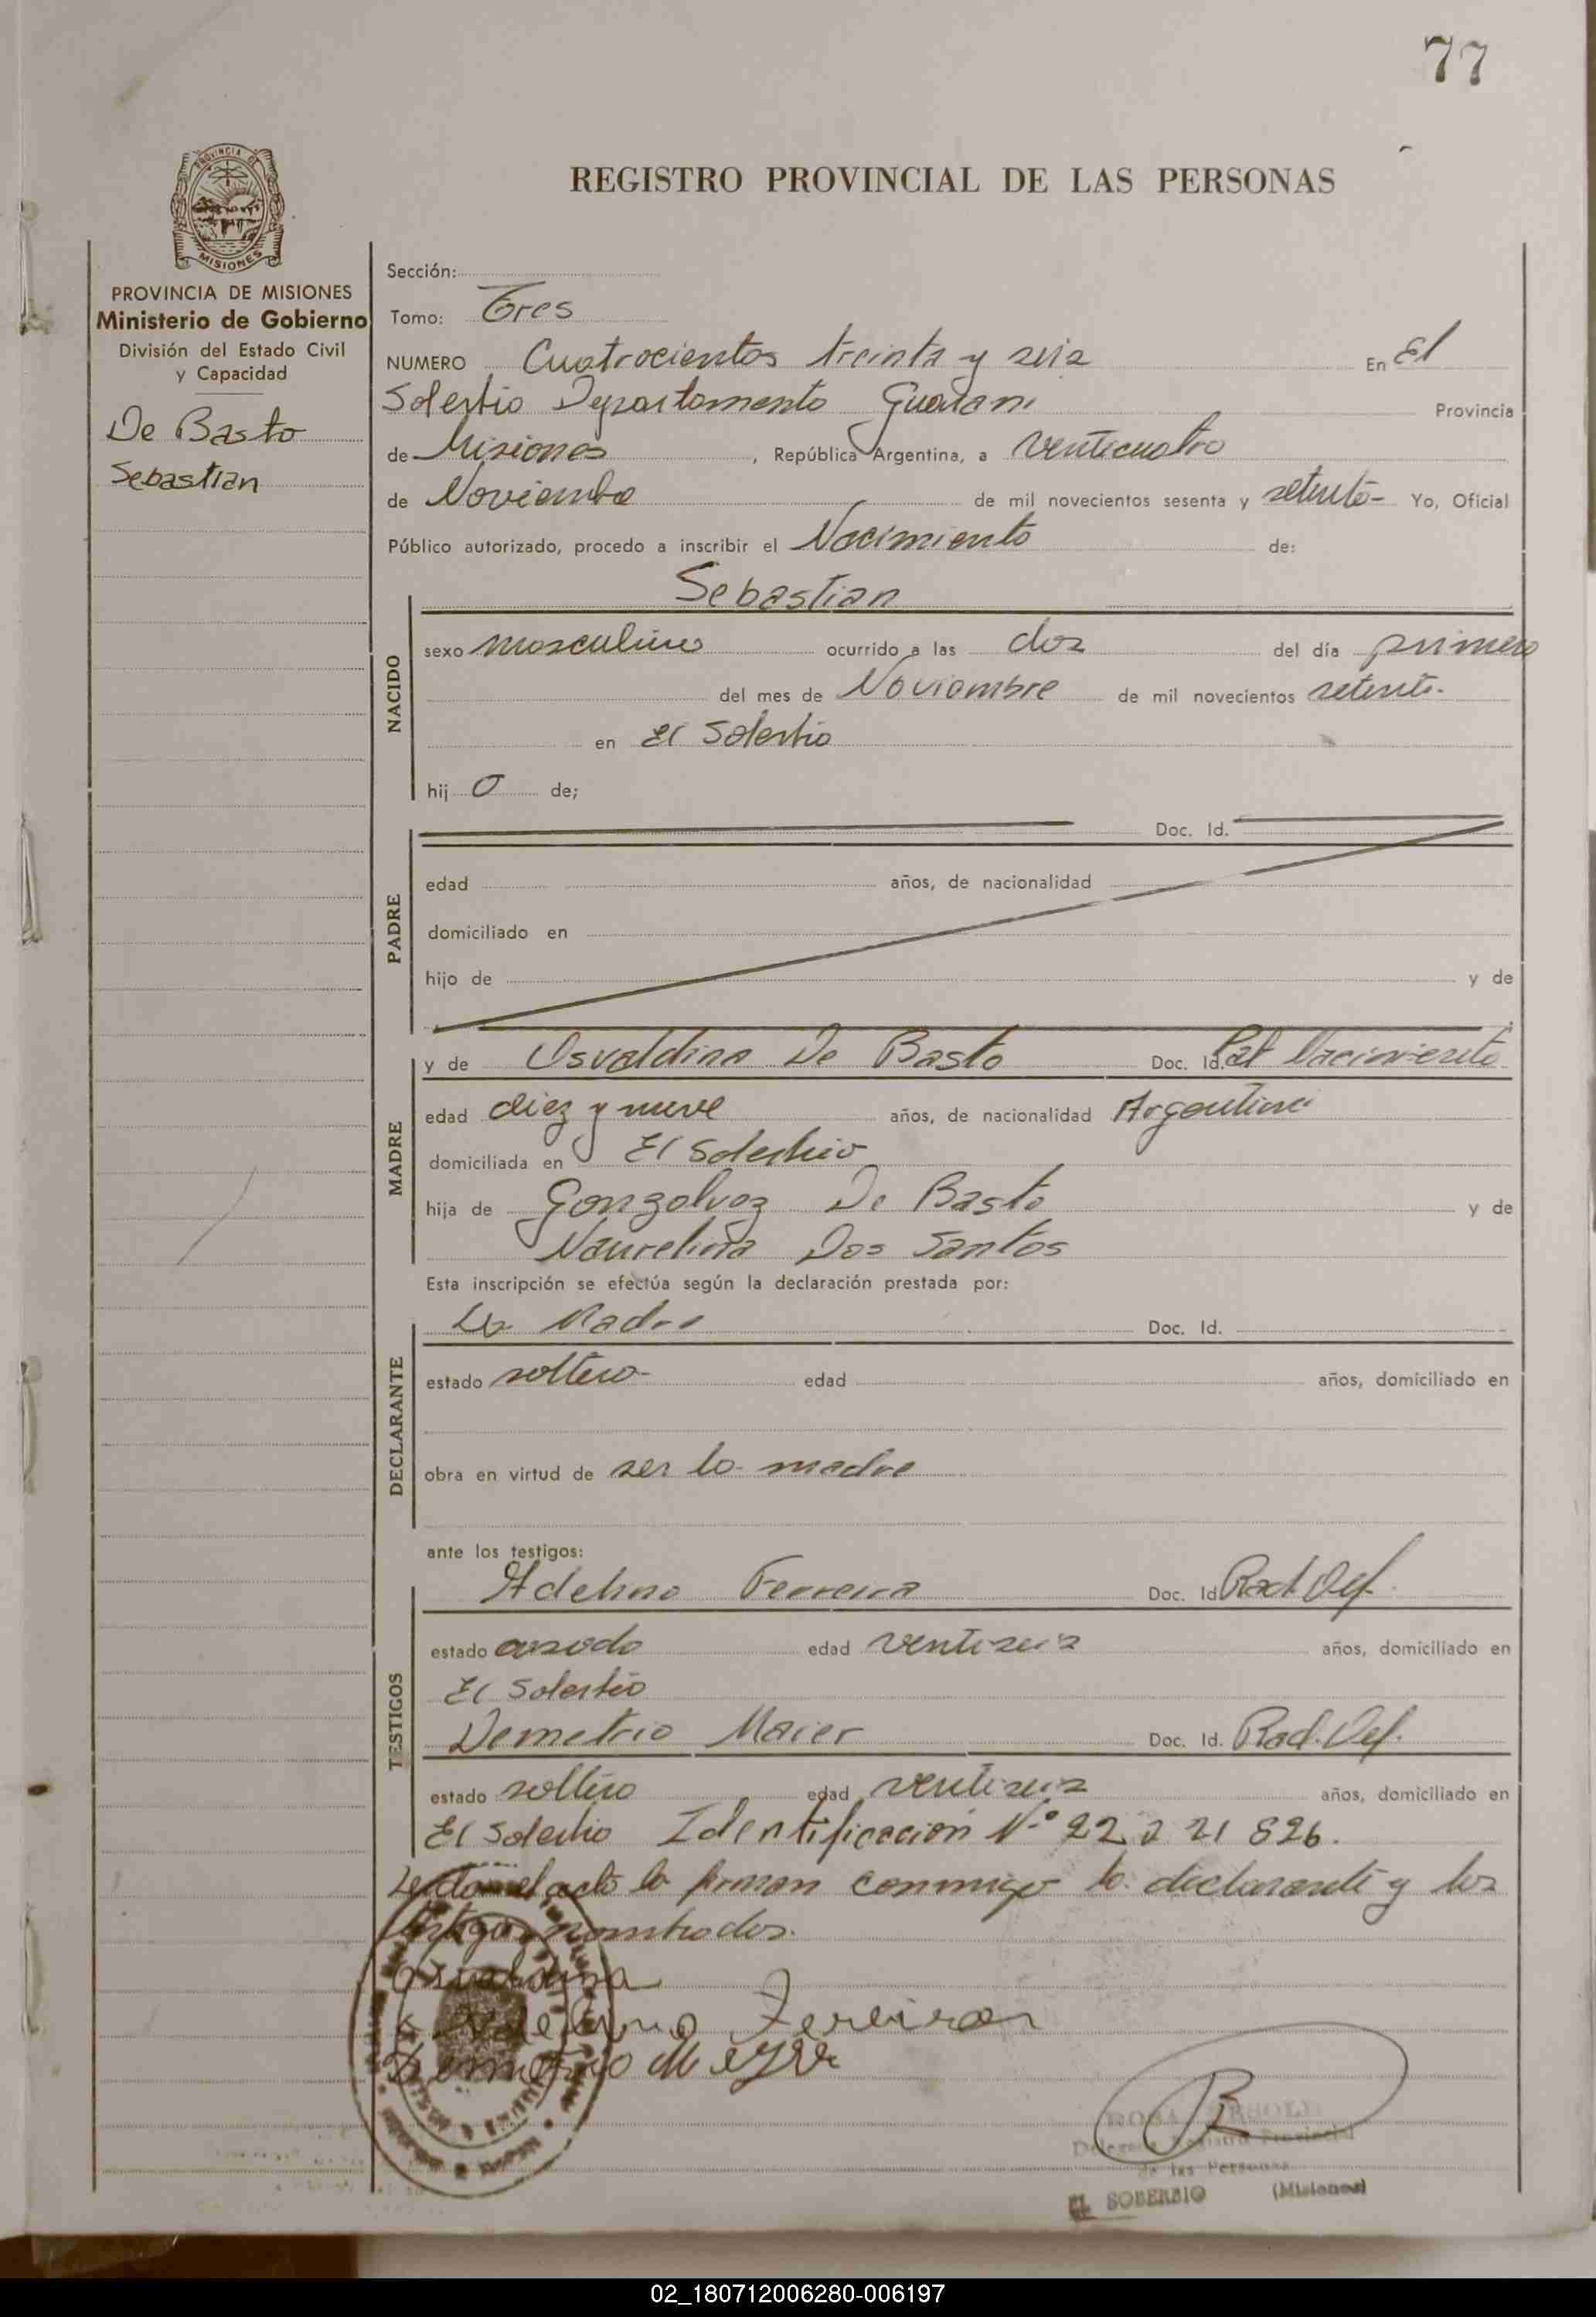 77
REGISTRO PROVINCIAL DE LAS PERSONAS
PROVINCIA DE
MISIONES
PROVINCIA DE MISIONES
Ministerio de Gobierno
División del Estado Civil
y Capacidad
De Basto
Sebastian
Sección:
Tomo: Tres
NUMERO Cuatrocientos treinta y seis En El
Soberbio Departamento Guarani Provincia
de Misiones, República Argentina, a venticuatro
de Noviembre de mil novecientos sesenta y setenta- Yo, Oficial
Público autorizado, procedo a inscribir el Nacimiento de:
Sebastian
NACIDO
sexo masculino ocurrido a las dos del día primero
del mes de Noviembre de mil novecientos setenta.
en El Soberbio
hij o de;
PADRE
Doc. Id.
edad años, de nacionalidad
domiciliado en
hijo de y de
MADRE
y de Osvaldina De Basto Doc. Id. Nacimiento
edad diez y nueve años, de nacionalidad Argentina
domiciliada en El Soberbio
hija de Gonzalvez De Basto y de
Naurelina Dos Santos
Esta inscripción se efectúa según la declaración prestada por:
DECLARANTE
La Madre Doc. Id.
estado soltera- edad años, domiciliado en
obra en virtud de ser la madre
ante los testigos:
TESTIGOS
Adelino Ferreira Doc. Id Rad. Def.
estado casado edad ventiseis años, domiciliado en
El Soberbio
Demetrio Maier Doc. Id. Rad. Def.
estado soltero edad ventiseis años, domiciliado en
El Soberbio Identificación Nº 22 221 826.
Leida el acta la firman conmigo la declarante y los
testigos nombrados.
Osvaldina
Adelino Fereira
Demetrio
Delegada Registro Provincial
de las Personas
EL SOBERBIO (Misiones)
02_180712006280-006197